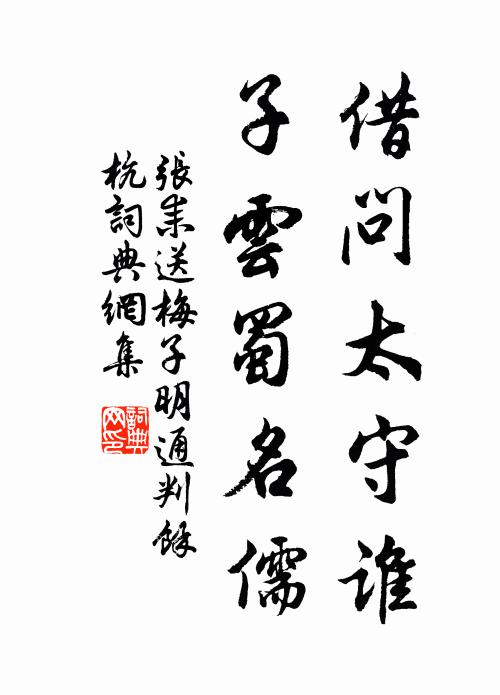 借問太守誰
子雲蜀名儒
張耒送梅子明通判餘
杭詞典網集
詞典
网印